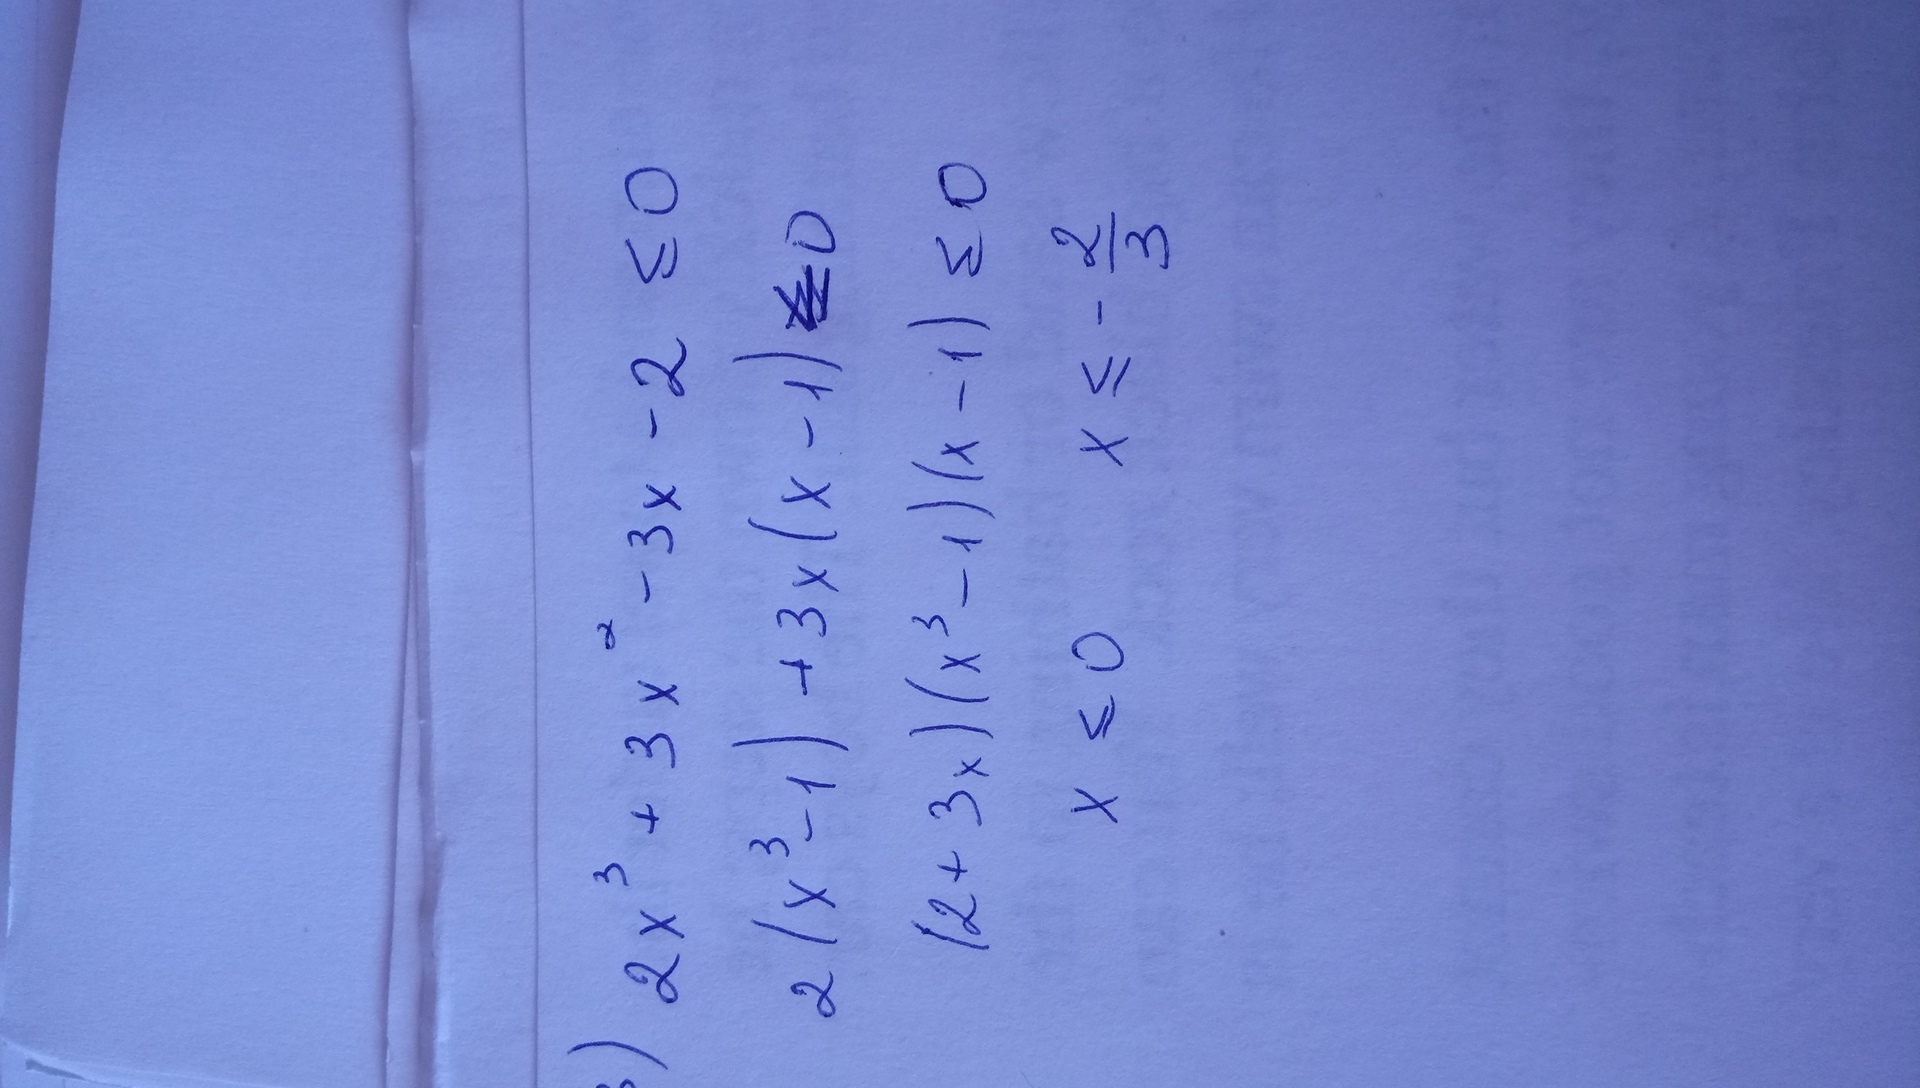 3) 2x³ + 3x² - 3x - 2 ≤ 0
2(x³-1) + 3x(x-1) ≤ 0
(2+3x)(x³-1)(x-1) ≤ 0
x ≤ 0 x ≤ -2/3